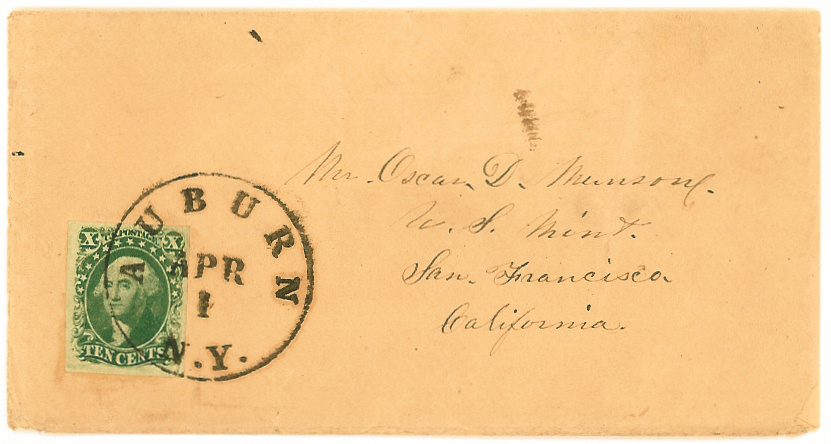 Mr. Oscar D. Munson.
U. S. Mint.
San Francisco
California.
AUBURN
APR
1
N.Y.
X U.S. POSTAGE X
TEN CENTS